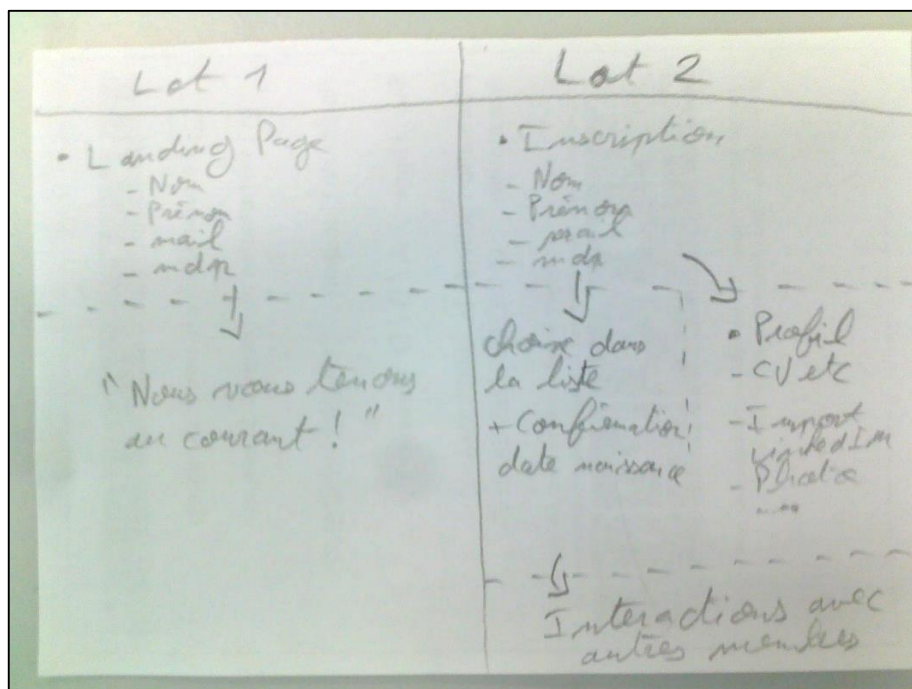 Lot 1
• Landing Page
- Nom
- Prénom
- mail
- mdp
"Nous vous tenons
au courant ! "
Lot 2
• Inscription
- Nom
- Prénom
- mail
- mdp
choix dans
la liste
+ Confirmation
date naissance
• Profil
- CV etc
- Import
LinkedIn
- Photo
...
Interactions avec
autres membres